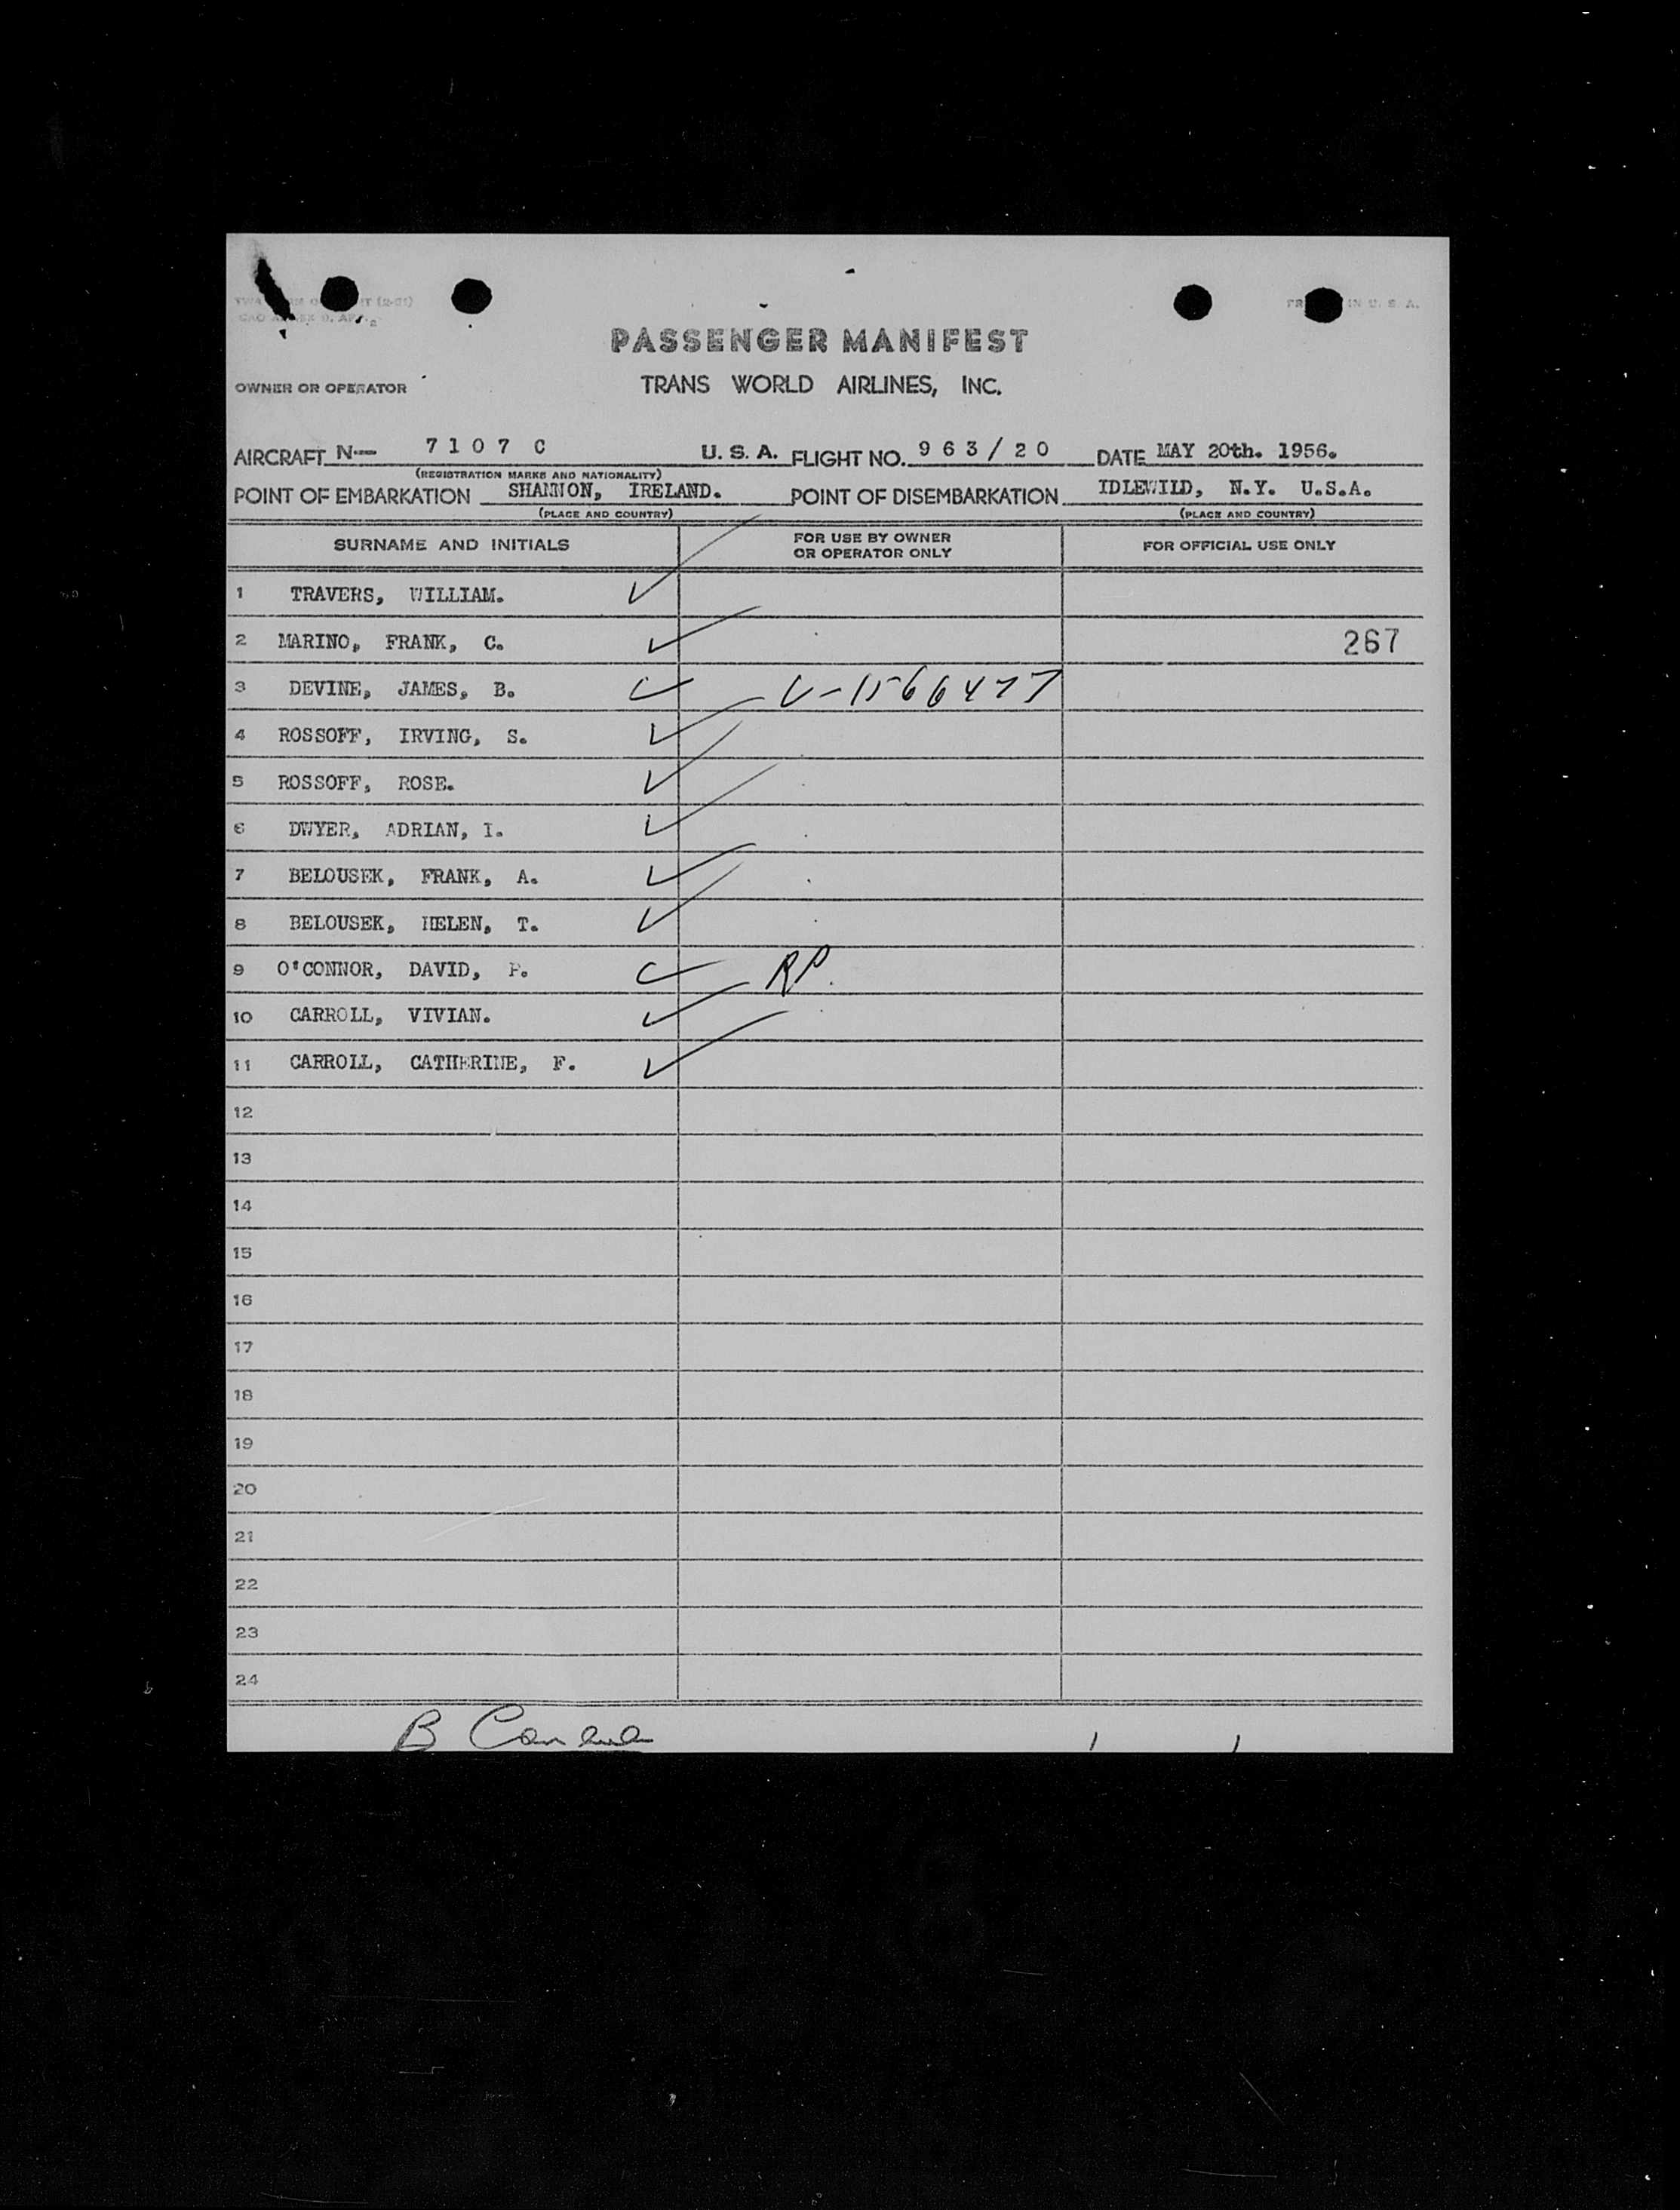 PASSENGER MANIFEST
OWNER OR OPERATOR TRANS WORLD AIRLINES, INC.
AIRCRAFT N— 7107 C U. S. A. FLIGHT NO. 963/20 DATE MAY 20th. 1956.
(REGISTRATION MARKS AND NATIONALITY)
POINT OF EMBARKATION SHANNON, IRELAND. POINT OF DISEMBARKATION IDLEWILD, N.Y. U.S.A.
(PLACE AND COUNTRY) (PLACE AND COUNTRY)
SURNAME AND INITIALS FOR USE BY OWNER OR OPERATOR ONLY FOR OFFICIAL USE ONLY
1 TRAVERS, WILLIAM.
2 MARINO, FRANK, C. 267
3 DEVINE, JAMES, B. V-1566477
4 ROSSOFF, IRVING, S.
5 ROSSOFF, ROSE.
6 DWYER, ADRIAN, I.
7 BELOUSEK, FRANK, A.
8 BELOUSEK, HELEN, T.
9 O'CONNOR, DAVID, P. RP.
10 CARROLL, VIVIAN.
11 CARROLL, CATHERINE, F.
12
13
14
15
16
17
18
19
20
21
22
23
24
B